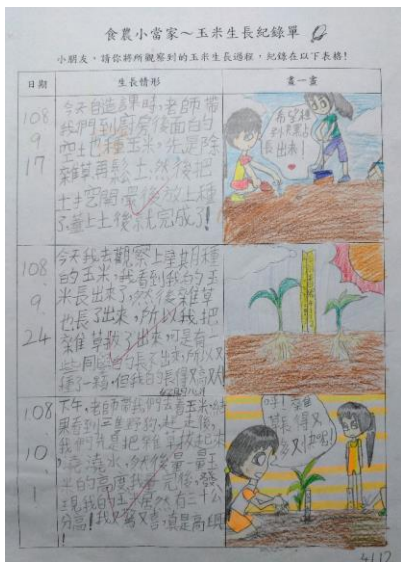 食農小當家～玉米生長紀錄單
小朋友，請你將所觀察到的玉米生長過程，紀錄在以下表格！
日期
生長情形
畫一畫
108
9
17
今天自造課時，老師帶
我們到廚房後面的
空土也種玉米，先是除
雜草再鬆土，然後把
土空開，最後放上種
子蓋上土後就完成了！
希望種
長出來！
108
9
24
今天我去觀察上星期種
的玉米，我看到我的玉
米長出來了，然後雜草
也長了出來，所以我把
雜草拔了出來，可是有一
些同學的長不出來，所以又
種了一顆，但我的長得又高又大
108
10
1
下午，老師帶我們去看玉米，
我們先是把雜草拔起來
澆澆水，然後量一量玉
米的高度，我量完後，發
現我的玉米居然有三十公
分高！我又驚又喜，真是高興
呼！雜
草長得又
多又快呢！